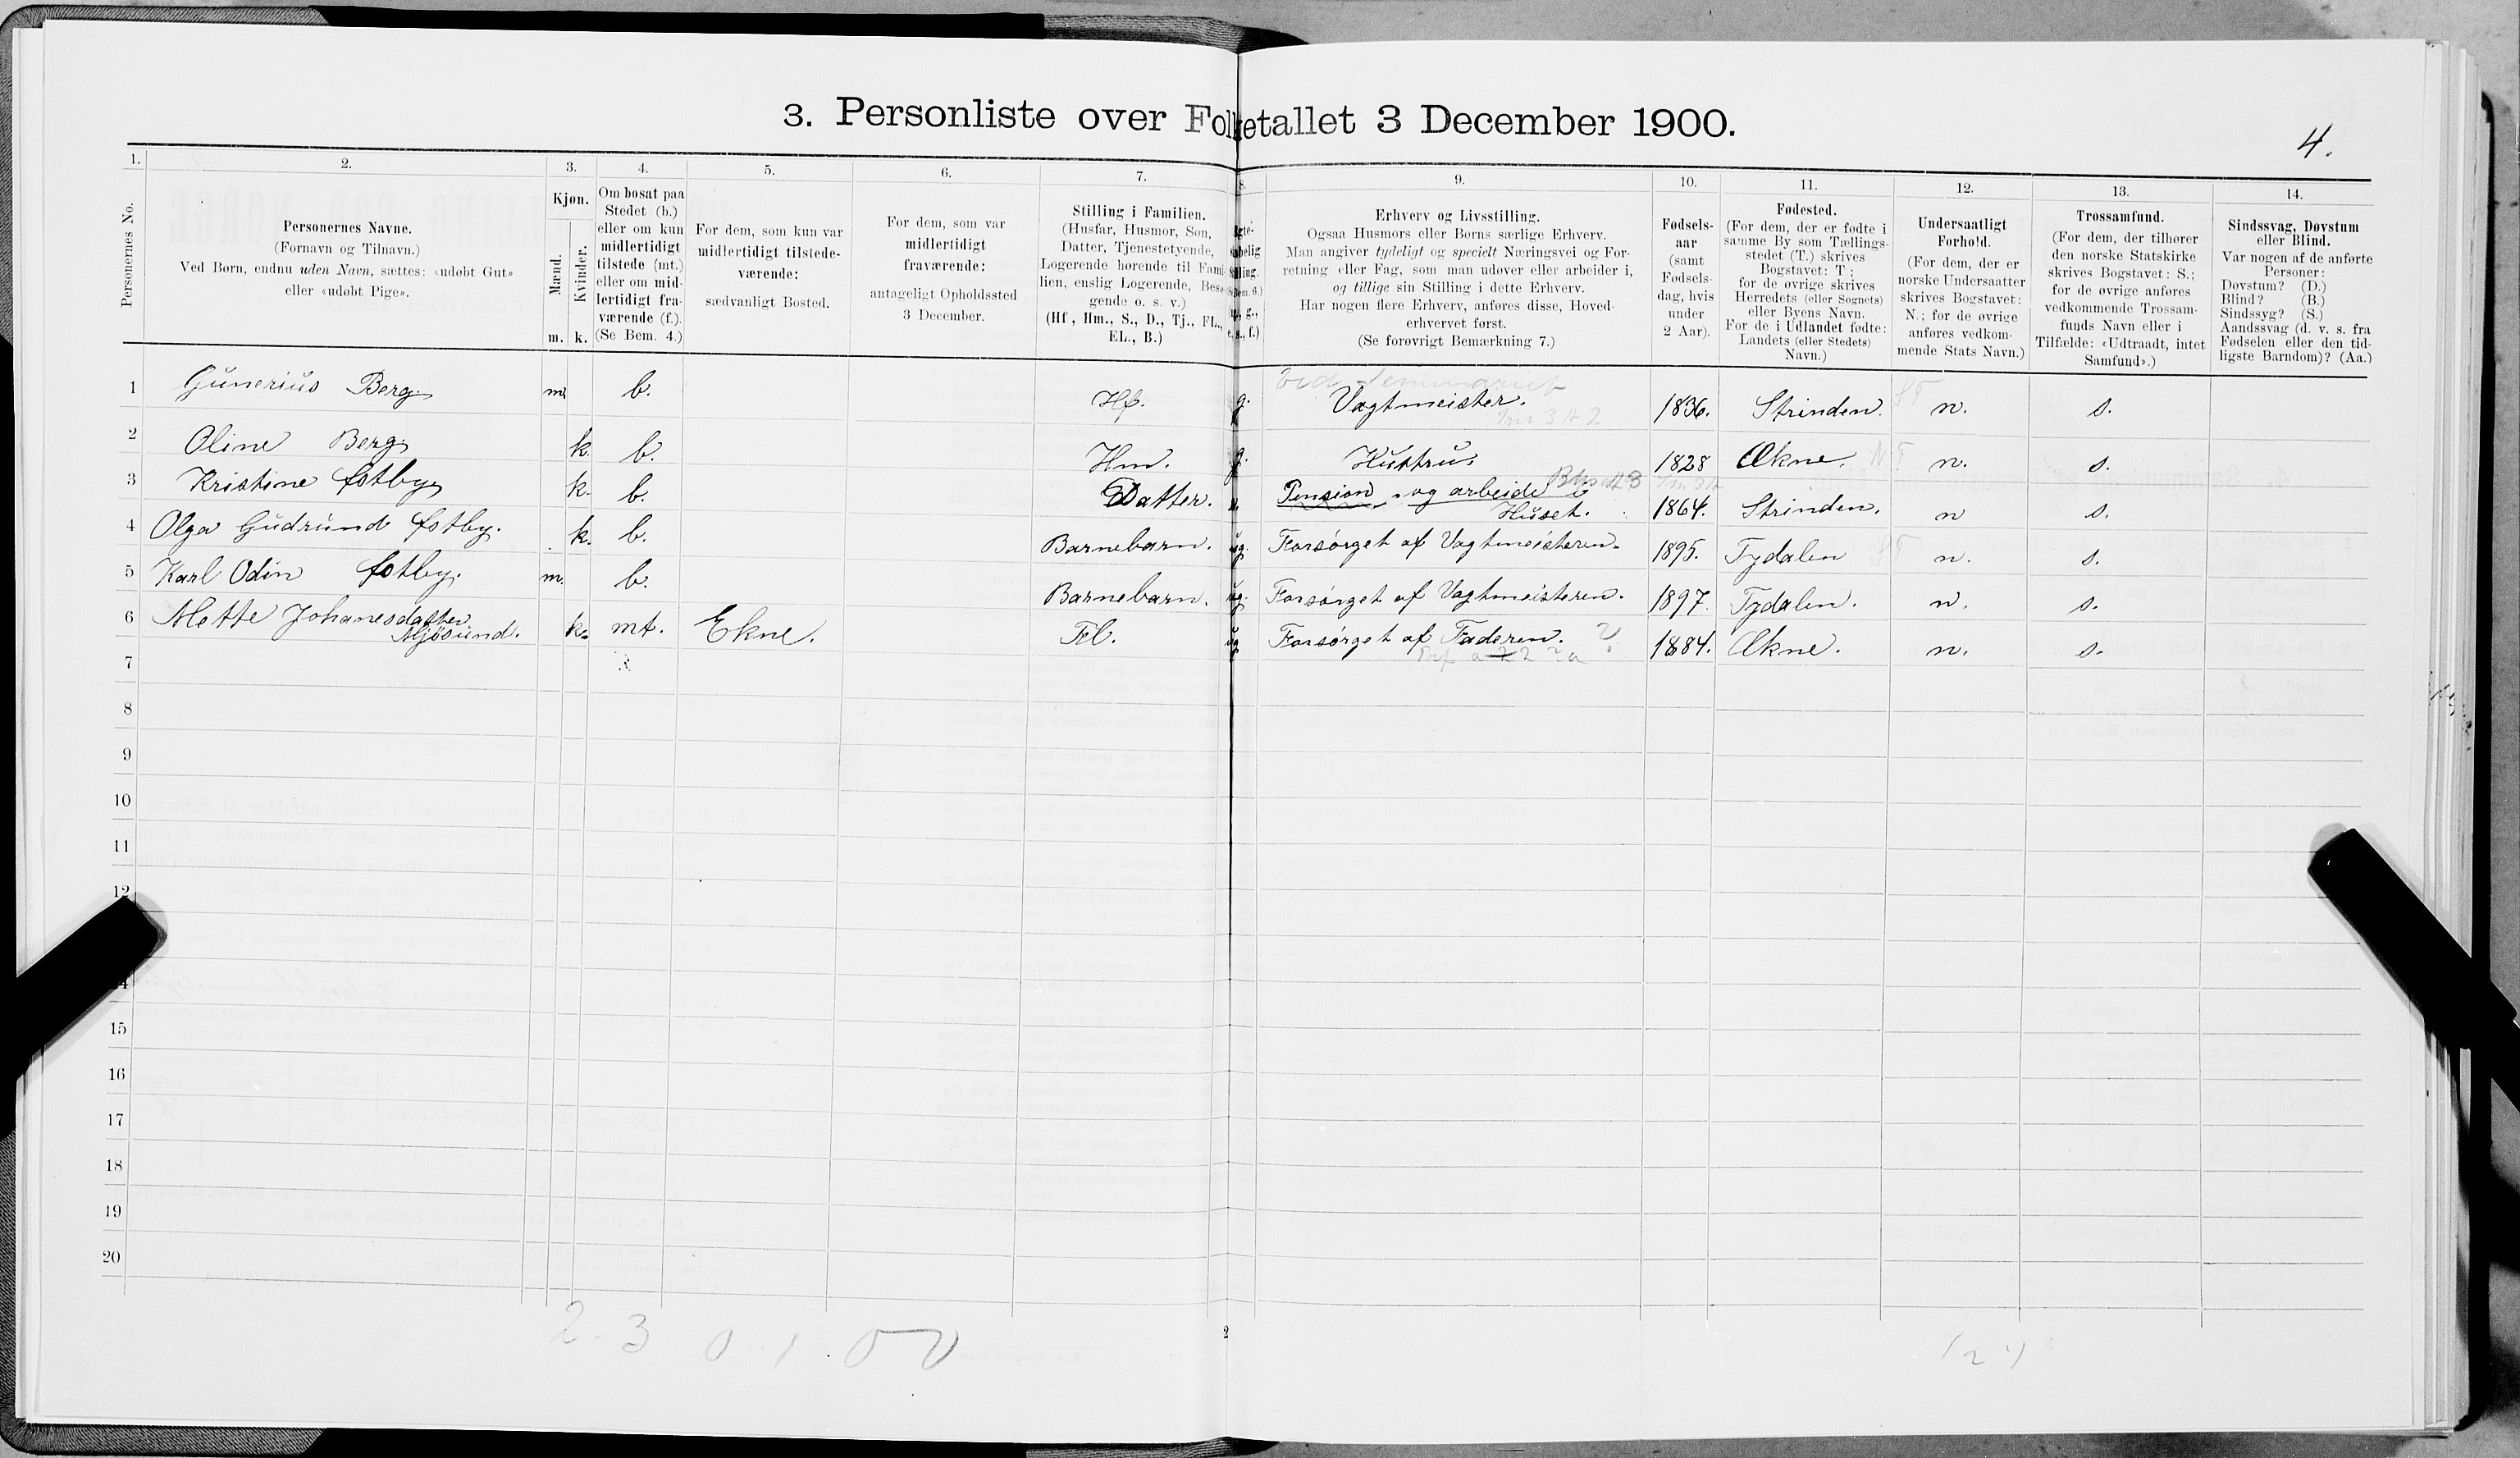 3. Personliste over Folketallet 3 December 1900.
4.
1. 2. 3. 4. 5. 6. 7. 8. 9. 10. 11. 12. 13. 14.
Personernes No.
Personernes Navne.
(Fornavn og Tilnavn.)
Ved Børn, endnu uden Navn, sættes: «udøbt Gut»
eller «udøbt Pige».
Kjøn.
Mænd.
Kvinder.
m. k.
Om bosat paa
Stedet (b.)
eller om kun
midlertidigt
tilstede (mt.)
eller om mid-
lertidigt fra-
værende (f.).
(Se Bem. 4.)
For dem, som kun var
midlertidigt tilstede-
værende:
sædvanligt Bosted.
For dem, som var
midlertidigt
fraværende:
antageligt Opholdssted
3 December.
Stilling i Familien.
(Husfar, Husmor, Søn,
Datter, Tjenestetyende,
Logerende hørende til Fami-
lien, enslig Logerende, Besø-
gende o. s. v.)
(Hf, Hm., S., D., Tj., FL.,
EL., B.)
Erhverv og Livsstilling.
Ogsaa Husmors eller Børns særlige Erhverv.
Man angiver tydeligt og specielt Næringsvei og For-
retning eller Fag, som man udøver eller arbeider i,
og tillige sin Stilling i dette Erhverv.
Har nogen flere Erhverv, anføres disse, Hoved-
erhvervet først.
(Se forøvrigt Bemærkning 7.)
Fødsels-
aar
(samt
Fødsels-
dag, hvis
under
2 Aar).
Fødested.
(For dem, der er fødte i
samme By som Tællings-
stedet (T.) skrives
Bogstavet: T;
for de øvrige skrives
Herredets (eller Sognets)
eller Byens Navn.
For de i Udlandet fødte:
Landets (eller Stedets)
Navn.)
Undersaatligt
Forhold.
(For dem, der er
norske Undersaatter
skrives Bogstavet:
N.; for de øvrige
anføres vedkom-
mende Stats Navn.)
Trossamfund.
(For dem, der tilhører
den norske Statskirke
skrives Bogstavet: S.;
for de øvrige anføres
vedkommende Trossam-
funds Navn eller i
Tilfælde: «Udtraadt, intet
Samfund».)
Sindssvag, Døvstum
eller Blind.
Var nogen af de anførte
Personer:
Døvstum? (D.)
Blind? (B.)
Sindssyg? (S.)
Aandssvag (d. v. s. fra
Fødselen eller den tid-
ligste Barndom)? (Aa.)
ved Seminariet
1 Gunerius Berg m. b. Hf. g. Vagtmeister. 1836. Strinden. n. s.
2 Oline Berg k. b. Hm. g. Hustru. 1828 Ekne. n. s.
3 Kristine Østby k. b. Datter. Pension og arbeide i
Huset. 1864. Strinden. n s.
4 Olga Gudrund Østby. k. b. Barnebarn. ug. Forsørget af Vagtmeisteren. 1895. Tydalen n. s.
5 Karl Odin Østby. m. b. Barnebarn. ug. Forsørget af Vagtmeisteren. 1897. Tydalen. n. s.
6 Mette Johanesdatter
Mjøsund. k. mt. Ekne. Fl. ug Forsørget af Faderen. 1884. Ekne. n. s.
7
8
9
10
11
12
15
16
17
18
19
20
2 - 3 0 - 1 . 0 0
2